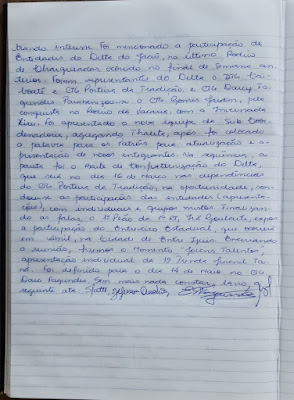 trando interum. Foi mencionado a participação de
Entidades do Delta do Jacuí, no último Rodeio
de Charqueadas ocorrido no final de Semana an-
terior. Foram representantes do Delta o Cai-
boaté e Ctg Porteira da Tradição, e Ctg Darcy Fa-
gundes. Parabenizou-se o Ctg Gomes Jardim, pela
conquista no Rodeio de Vacaria, com a Invernada
Xiru. Foi apresentado a nova equipe da Sub Coor-
denadoria, agregando Thalita, após foi colocado
a palavra para os Patrões para atualização e a-
presentação de novos integrantes. Na sequência, a
pauta foi o Baile de Confraternização do Delta,
que será no dia 16 de Março nas dependências
do Ctg Porteira da Tradição, na oportunidade, con-
dou-se as participações das entidades (apresenta-
ções), com individuais e grupos mistos. Finalizan-
do as falas, o 1º Peão da 1ª RT, Goularte, expôs
a participação do Entrevero Estadual, que ocorrerá
em Abril, na Cidade de Entre Ijuís. Encerrando
a reunião, tivemos o Momento Jovens Talentos,
apresentação individual da 1ª Prenda Juvenil
foi definida para o dia 14 de Maio no Ctg
Darci Fagundes. Sem mais nada constar, lavro, eu
seguinte ata